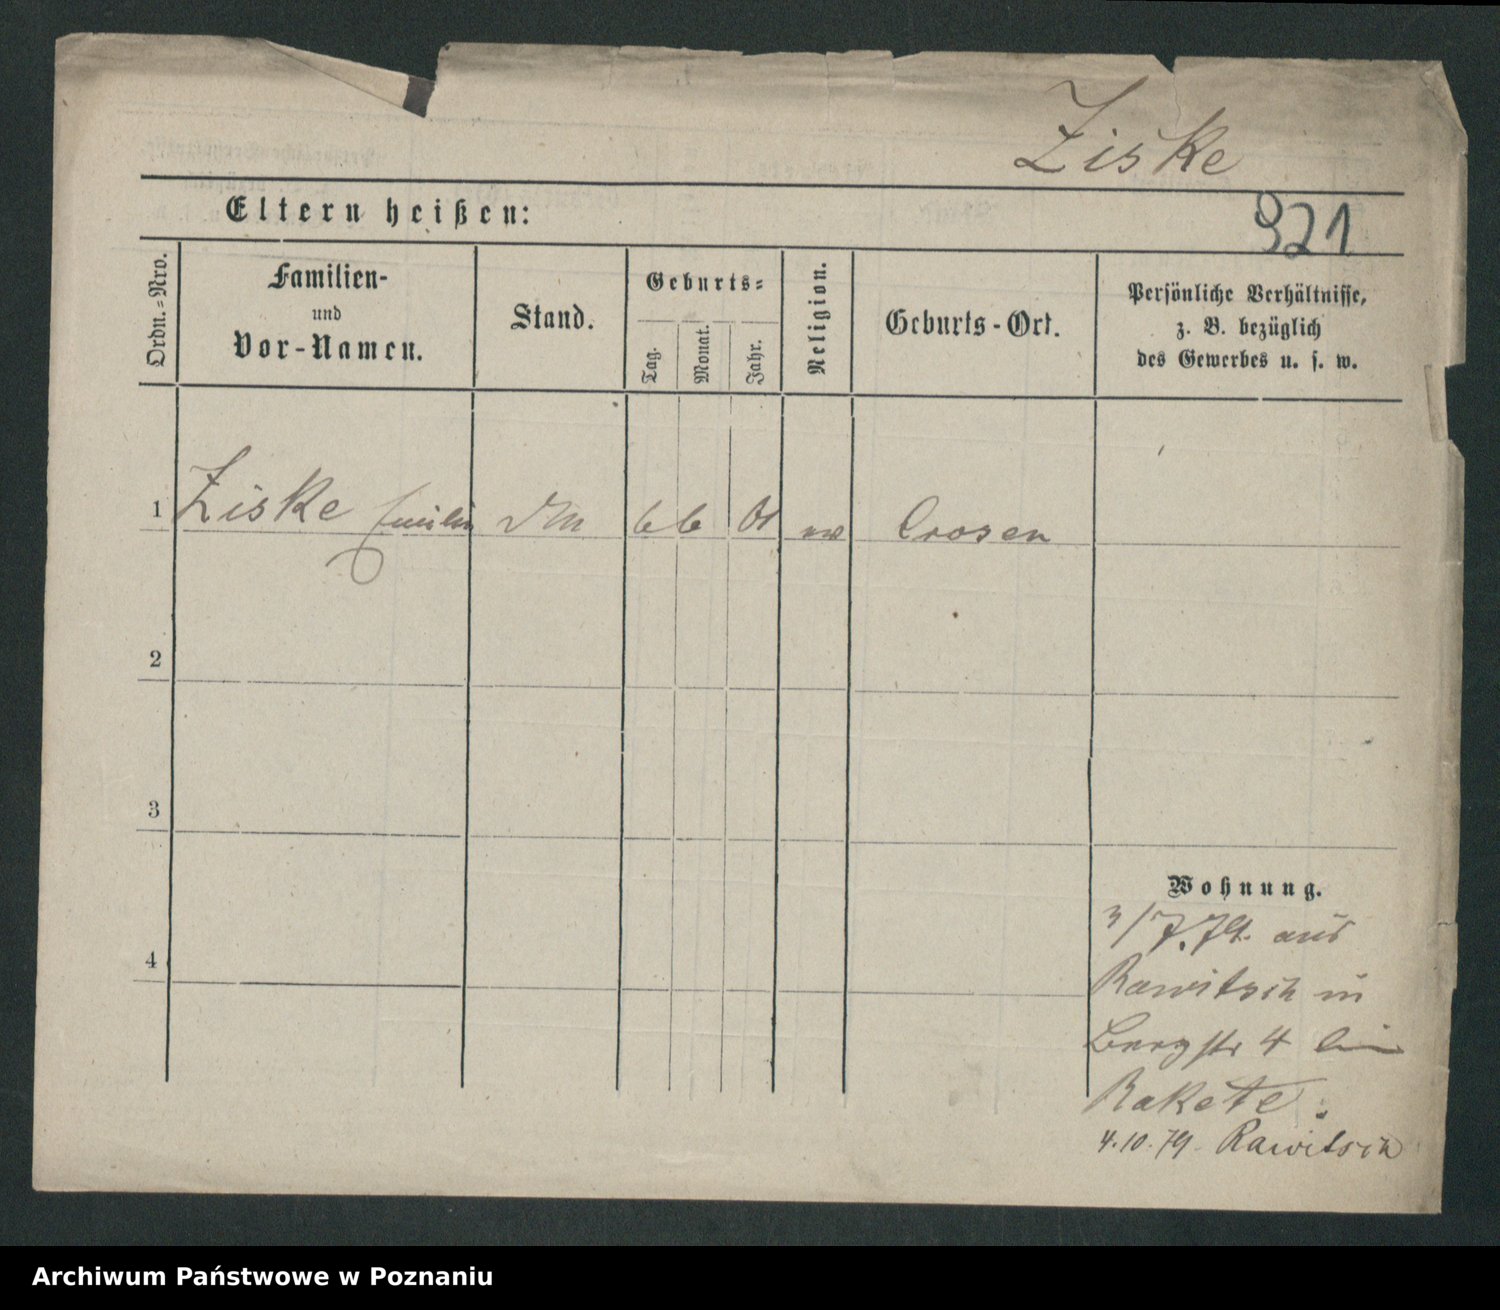 Ziske
Eltern heißen:
921
Ordn.-Nro.
Familien-
und
Vor-Namen.
Stand.
Geburts-
Tag.
Monat.
Jahr.
Religion.
Geburts-Ort.
Persönliche Verhältnisse,
z. B. bezüglich
des Gewerbes u. s. w.
1 Ziske 6 6 Crosen
2
3
4
Wohnung.
3/7.79. aus
Rawitsch in
Bergstr 4 bei
Rakete.
4.10.79. Rawitsch
Archiwum Państwowe w Poznaniu